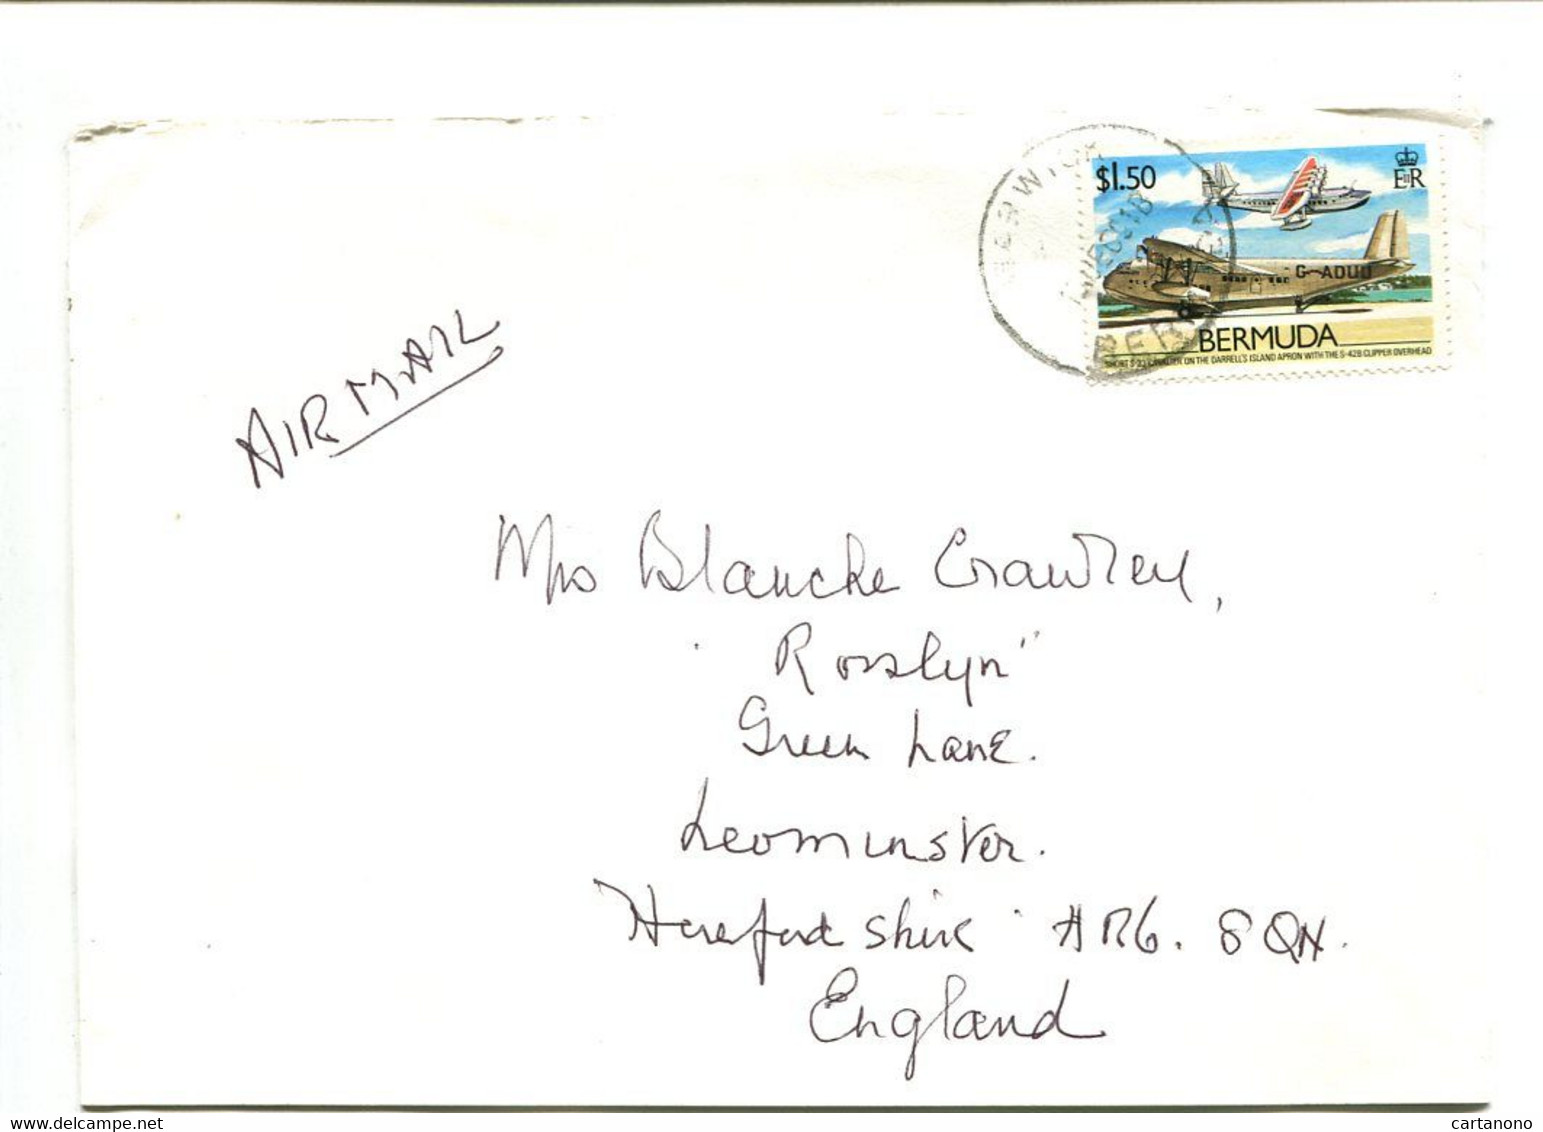 $1.50
E II R
G-ADUU
BERMUDA
SHORT S-23 CAVALIER ON THE DARRELL'S ISLAND APRON WITH THE S-42B CLIPPER OVERHEAD
AIR MAIL
Mrs Blanche Crawley,
"Rosslyn"
Green Lane.
Leominster.
Herefordshire HR6. 8QN.
England
delcampe.net
cartanono